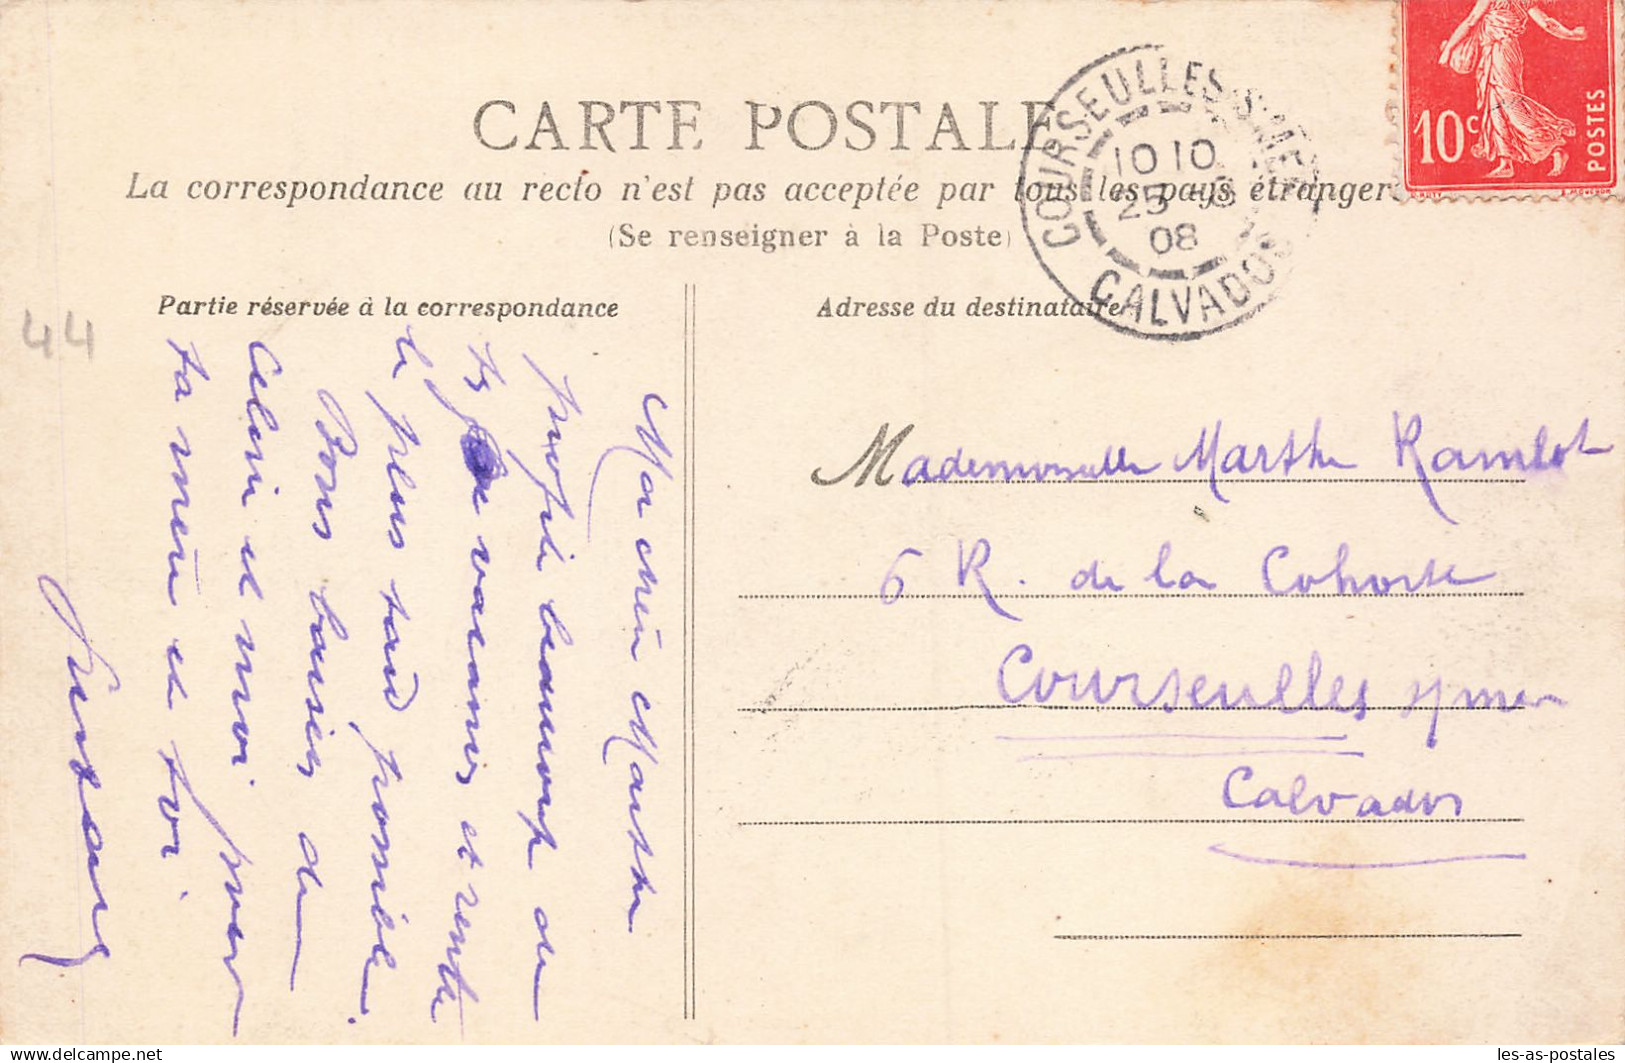 CARTE POSTALE
La correspondance au recto n'est pas acceptée par tous les pays étrangers
(Se renseigner à la Poste)
COURSEULLES S MER
10 10
25
08
CALVADOS
10c
POSTES
Partie réservée à la correspondance
Adresse du destinataire
44
Ma chère Marthe
profite beaucoup de
tes vacances et rentre
le plus tard possible.
Bons baisers de
Celine et moi pour
ta mère et toi
Mademoiselle Marthe Ramelot
6 R. de la Cohorte
Courseulles s/mer
Calvados
les-as-postales
les-as-postales.com